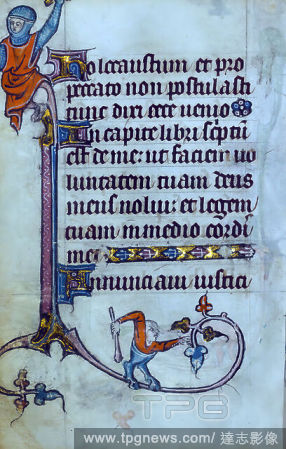 Holocaustum et pro
peccato non postulasti
tunc dixi ecce uenio
In capite libri scriptū
est de me: ut faciem uo
luntatem tuam deus
meus uolui: et legem
tuam in medio cordi
mei
Annunciaui iustici
TPG
www.tpgnews.com/ 達志影像